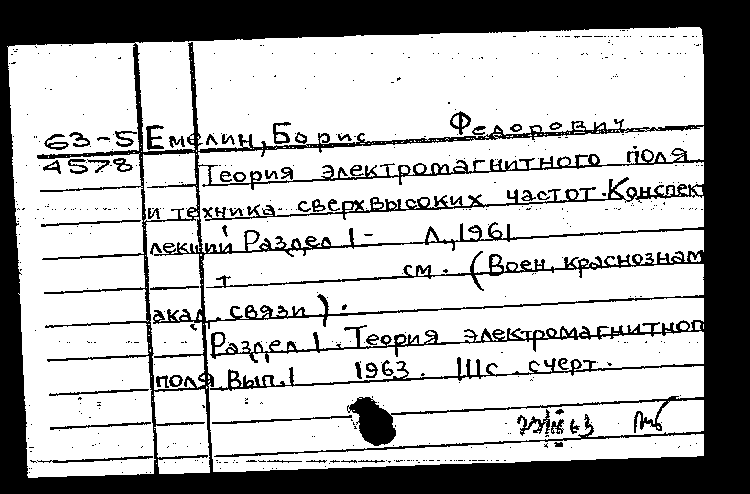 63-5 Емелин, Борис Федорович
4578 Теория электромагнитного поля
и техника сверхвысоких частот. Конспект
лекций Раздел I - Л., 1961
т см. (Воен. краснознам
акад. связи).
Раздел I. Теория электромагнитног
поля. Вып. I 1963. 111с. с черт.
63